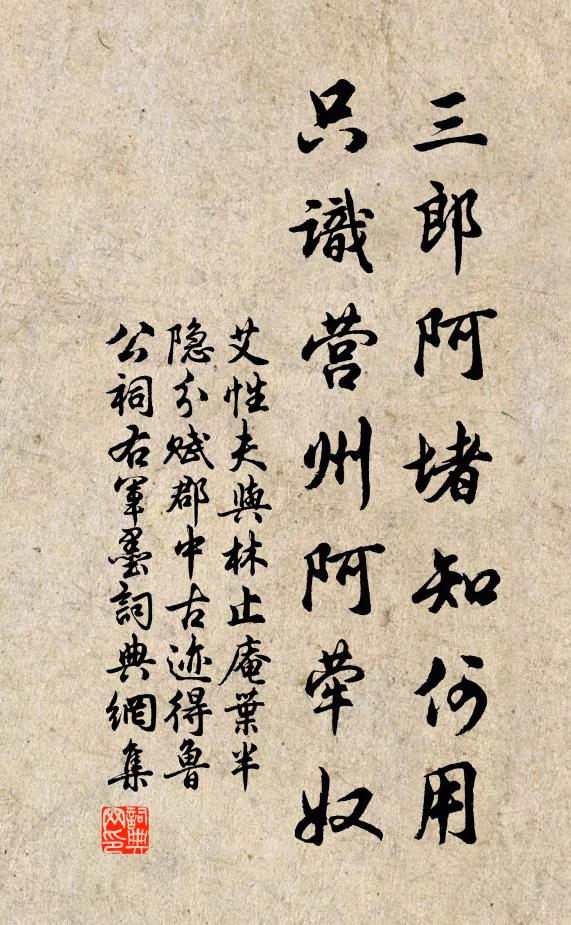 三郎阿堵知何用
只識营州阿荦奴
艾性夫與林止庵葉半
隐分赋郡中古迹得鲁
公祠右军墨詞典網集
詞典网印